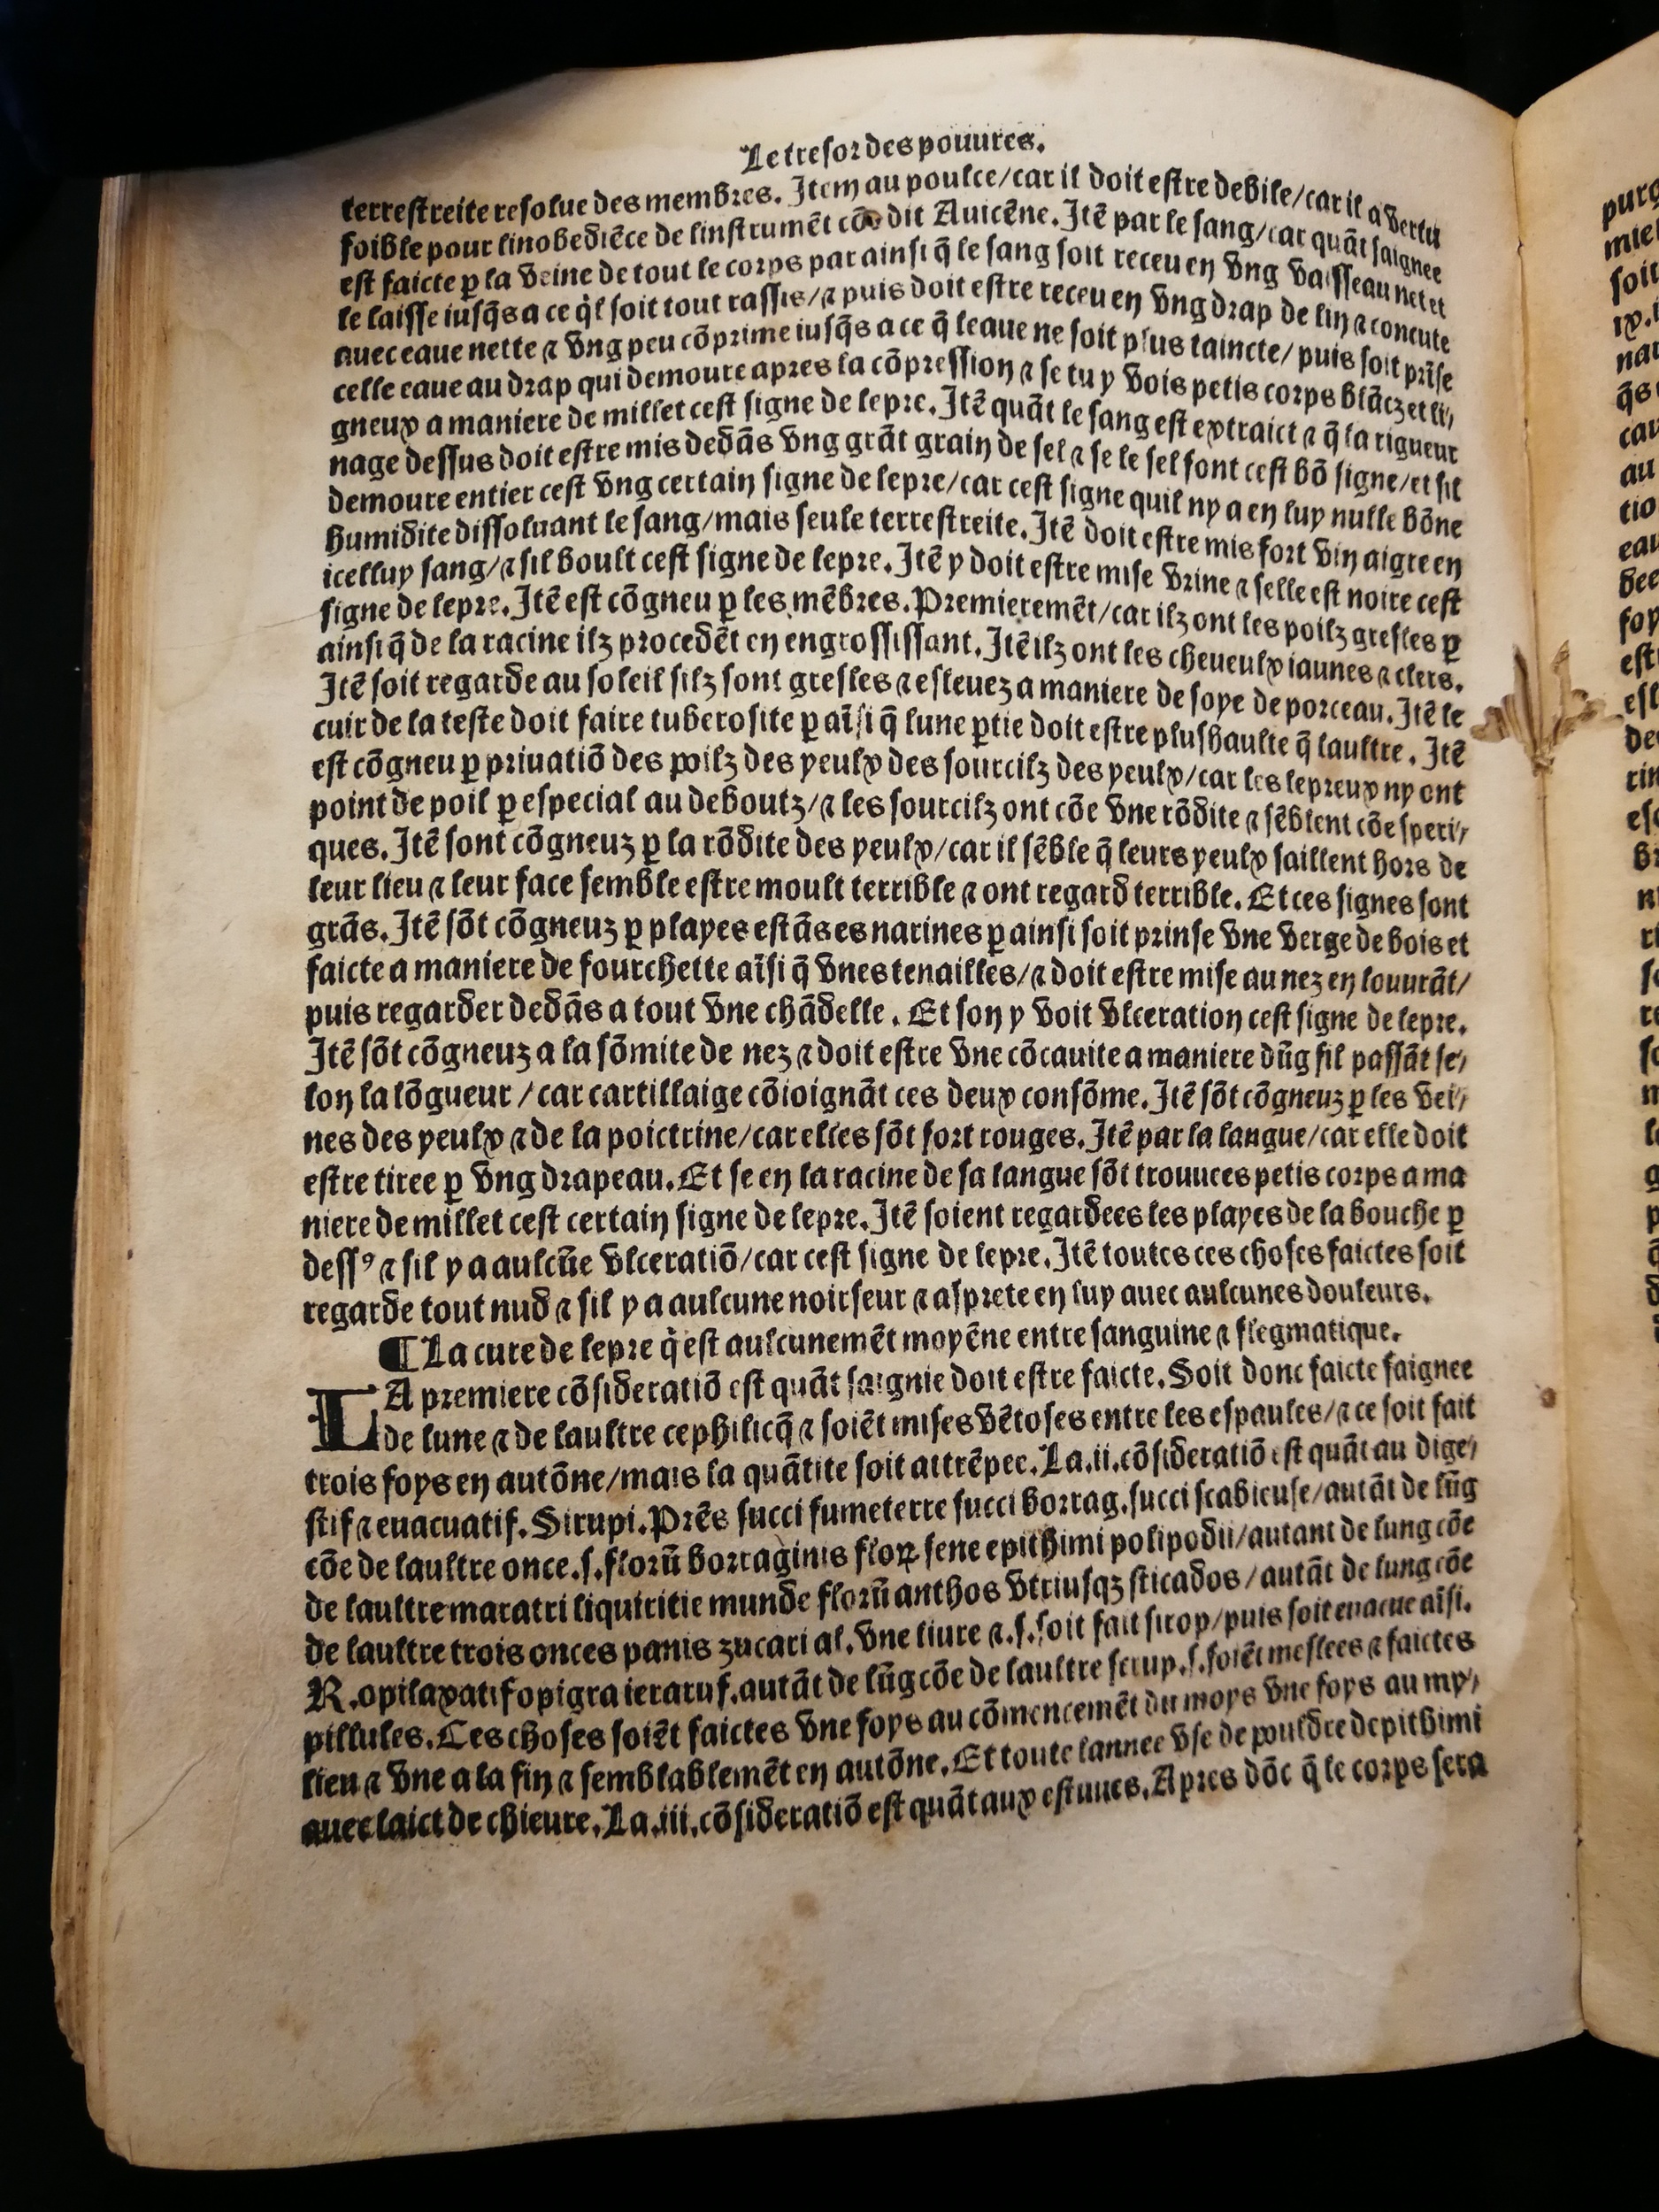 Le tresor des pouures.
terrestreite resolue des membres. Item au poulce/car il doit estre debile/car il a vertu
foible pour linobediēce de linstrumēt cōe dit Auicēne. Itē par le sang/car quāt saignee
est faicte ꝑ la veine de tout le corps par ainsi q̄ le sang soit receu en vng vaisseau net et
le laisse iusq̄s a ce q̇l soit tout rassis/⁊ puis doit estre receu en vng drap de lin ⁊ concute
auec eaue nette ⁊ vng peu cōprime iusq̄s a ce q̄ leaue ne soit plus taincte/ puis soit prīse
celle eaue au drap qui demoure apres la cōpression ⁊ se tu y vois petis corps blācz et li/
gneux a maniere de millet cest signe de lepre. Itē quāt le sang est extraict ⁊ q̄ la rigueur
nage dessus doit estre mis dedās vng grāt grain de sel ⁊ se le sel font cest bō signe/et sil
demoure entier cest vng certain signe de lepre/car cest signe quil ny a en luy nulle bōne
humidite dissoluant le sang/mais seule terrestreite. Itē doit estre mis fort vin aigre en
icelluy sang/⁊ sil boult cest signe de lepre. Itē y doit estre mise vrine ⁊ selle est noire cest
signe de lepre. Itē est cōgneu ꝑ les mēbres. Premieremēt/car ilz ont les poilz gresles ꝑ
ainsi q̄ de la racine ilz procedēt en engrossissant. Itē ilz ont les cheueulx iaunes ⁊ clers.
Itē soit regarde au soleil silz sont gresles ⁊ esleuez a maniere de soye de porceau. Itē le
cuir de la teste doit faire tuberosite ꝑ aīsi q̄ lune ꝑtie doit estre plushaulte q̄ laultre. Itē
est cōgneu ꝑ priuatiō des poilz des yeulx des sourcilz des yeulx/car les lepreux ny ont
point de poil ꝑ especial au deboutz/⁊ les sourcilz ont cōe vne rōdite ⁊ sēblent cōe speri/
ques. Itē sont cōgneuz ꝑ la rōdite des yeulx/car il sēble q̄ leurs yeulx saillent hors de
leur lieu ⁊ leur face semble estre moult terrible ⁊ ont regard terrible. Et ces signes sont
grās. Itē sōt cōgneuz ꝑ playes estās es narines ꝑ ainsi soit prinse vne verge de bois et
faicte a maniere de fourchette aīsi q̄ vnes tenailles/⁊ doit estre mise au nez en louurāt/
puis regarder dedās a tout vne chādelle. Et son y voit vlceration cest signe de lepre.
Itē sōt cōgneuz a la sōmite de nez ⁊ doit estre vne cōcauite a maniere dūg fil passāt se/
lon la lōgueur / car cartillaige cōioignāt ces deux consōme. Itē sōt cōgneuz ꝑ les vei/
nes des yeulx ⁊ de la poictrine/car elles sōt fort rouges. Itē par la langue/car elle doit
estre tiree ꝑ vng drapeau. Et se en la racine de sa langue sōt trouuees petis corps a ma
niere de millet cest certain signe de lepre. Itē soient regardees les playes de la bouche ꝑ
dessꝰ ⁊ sil y a aulcūe vlceratiō/car cest signe de lepre. Itē toutes ces choses faictes soit
regarde tout nud ⁊ sil y a aulcune noirseur ⁊ asprete en luy auec aulcunes douleurs.
¶ La cure de lepre q̇ est aulcunemēt moyēne entre sanguine ⁊ flegmatique.
LA premiere cōsideratiō est quāt saignie doit estre faicte. Soit donc faicte saignee
de lune ⁊ de laultre cephilicq̄ ⁊ soiēt mises vētoses entre les espaules/⁊ ce soit fait
trois foys en autōne/mais la quātite soit attrēpee. La .ii. cōsideratiō est quāt au dige/
stif ⁊ euacuatif. Sirupi. Prēs succi fumeterre succi borrag. succi scabieuse/autāt de lūg
cōe de laultre once .ſ. florū borraginis floꝝ sene epithimi polipodii/autant de lung cōe
de laultre maratri liquiritie munde florū anthos vtriusqꝫ sticados/autāt de lung cōe
de laultre trois onces panis zucari al. vne liure ⁊ .ſ. soit fait sirop/puis soit euacue aīsi.
R. opilaxatif opigra ieraruf. autāt de lūg cōe de laultre scrup. ſ. soiēt meslees ⁊ faictes
pillules. Ces choses soiēt faictes vne foys au cōmencemēt du moys vne foys au my/
lieu ⁊ vne a la fin ⁊ semblablemēt en autōne. Et toute lannee vse de pouldre depithimi
auec laict de chieure. La .iii. cōsideratiō est quāt aux estuues. Apres dōc q̄ le corps sera